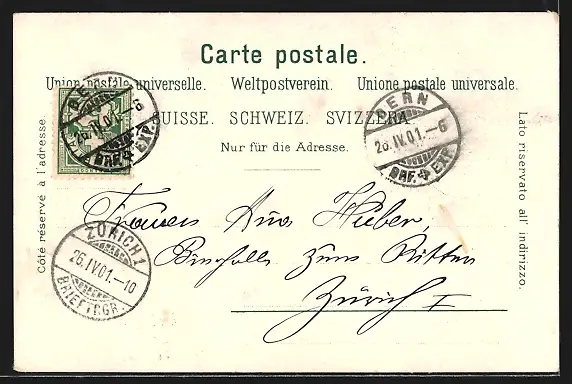 Carte postale.
Union postale universelle. Weltpostverein. Unione postale universale.
SUISSE. SCHWEIZ. SVIZZERA.
Nur für die Adresse.
Côté réservé à l'adresse.
Lato riservato all' indirizzo.
BERN
26.IV.01.–6
BRF. EXP.
BERN
26.IV.01.–6
BRF. EXP.
Huber,
zum Ritter
Zürich I
ZÜRICH 1
26.IV.01.–10
BRIEFTRGR.